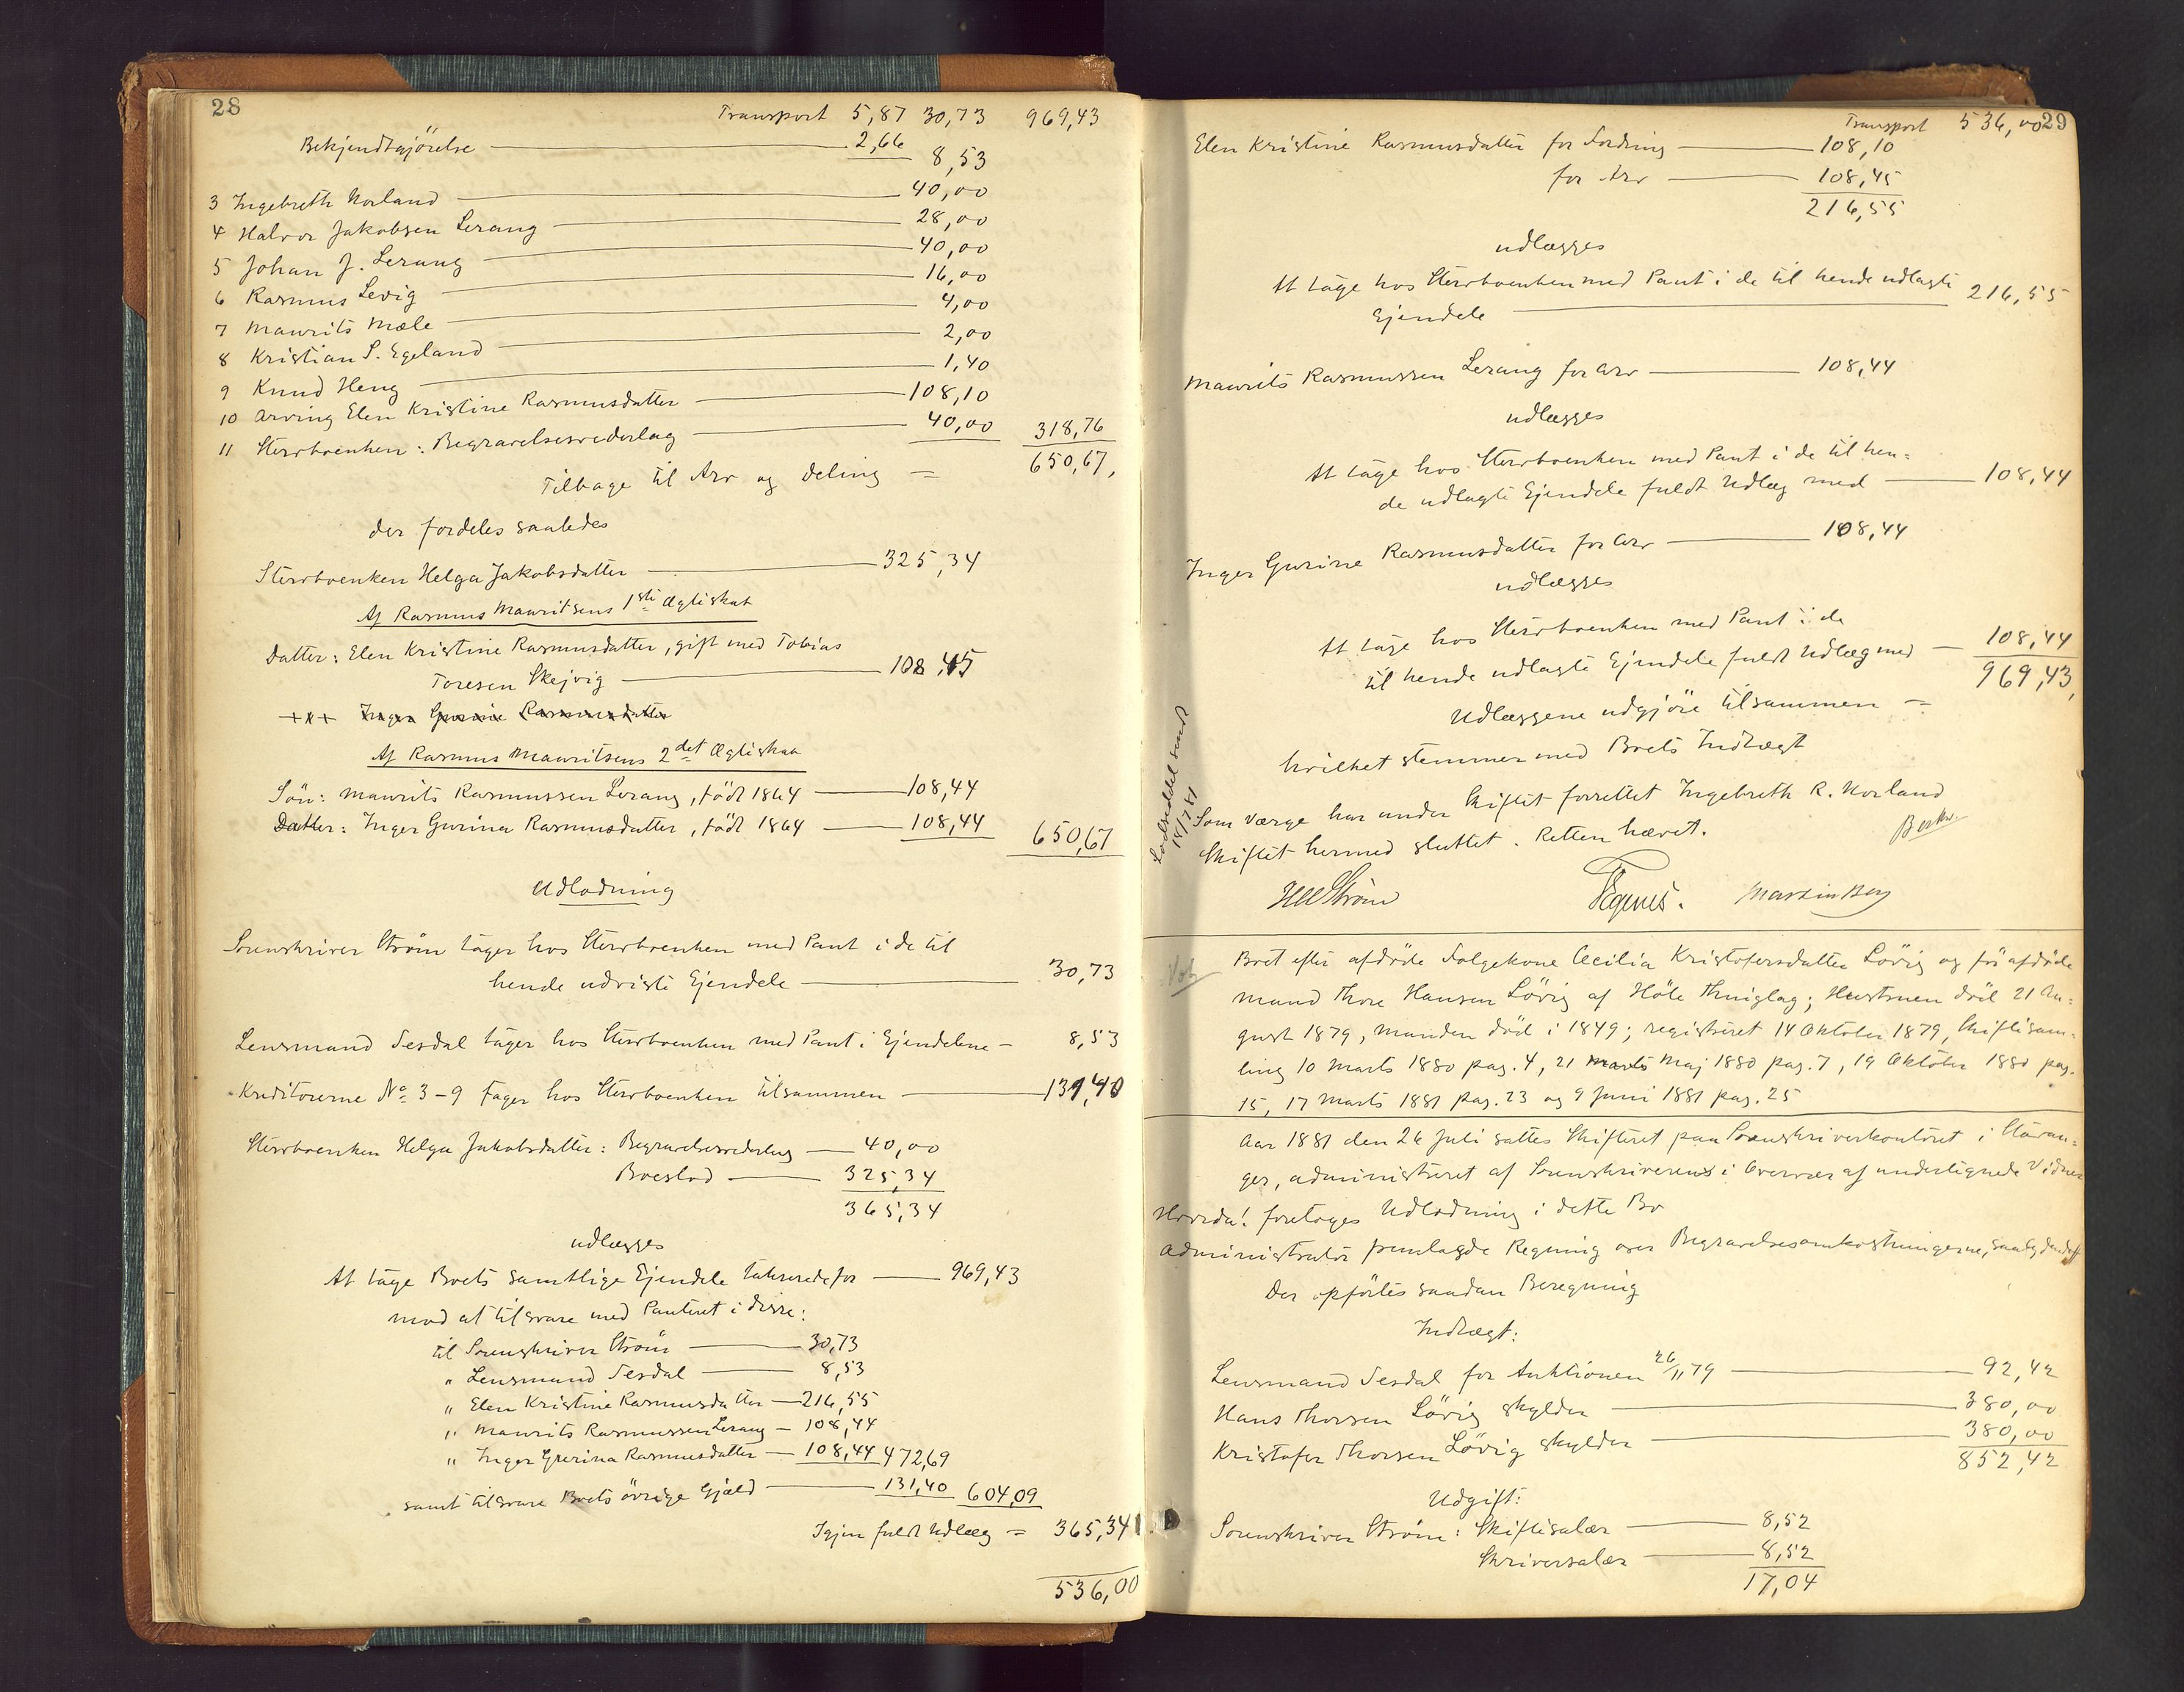 28
Transport 5,87 30,73 969,43
Bekjendtgjörelse 2,66 8,53
3 Ingebreth Norland 40,00
4 Halvor Jakobsen Lerang 28,00
5 Johan J. Lerang 40,00
6 Rasmus Levig 16,00
7 Maurits Mæle 4,00
8 Kristian S. Egeland 2,00
9 Knud Heng 1,40
10 Arving Elen Kristine Rasmusdatter 108,10
11 Stervboenken: Begravelsesvederlag 40,00 318,76
Tilbage til Arv og Deling = 650,67,
der fordeles saaledes
Stervboenken Helga Jakobsdatter 325,34
Af Rasmus Mauritsens 1ste Ægteskab
Datter: Elen Kristine Rasmusdatter, gift med Tobias
Toresen Skejvig 108,45
+++ Inger Gurine Rasmusdatter
Af Rasmus Mauritsens 2det Ægteskab
Sön: Maurits Rasmussen Lerang, född 1864 108,44
Datter: Inger Gurina Rasmusdatter, född 1864 108,44 650,67
Udlodning
Sorenskriver Ström tager hos Stervboenken med Pant i de til
hende udviste Ejendele 30,73
Lensmand Sesdal tager hos Stervboenken med Pant i Ejendelene - 8,53
Kreditorerne No 3-9 tager hos Stervboenken tilsammen 131,40
Stervboenken Helga Jakobsdatter: Begravelsesvederlag 40,00
Boeslod 325,34
365,34
udlægges
At tage Boets samtlige Ejendele takserede for 969,43
mod at tilsvare med Panteret i disse:
til Sorenskriver Ström 30,73
" Lensmand Sesdal 8,53
" Elen Kristine Rasmusdatter 216,55
" Maurits Rasmussen Lerang - 108,44
" Inger Gurina Rasmusdatter - 108,44 472,69
samt tilsvare Boets övrige Gjæld 131,40 604,09
Igjen fuldt Udlæg = 365,34
536,00
29
Transport 536,00
Elen Kristine Rasmusdatter for Fordring 108,10
for Arv 108,45
216,55
udlægges
At tage hos Stervboenken med Pant i de til hende udlagte
Ejendele 216,55
Maurits Rasmussen Lerang for Arv 108,44
udlægges
At tage hos Stervboenken med Pant i de til hen=
de udlagte Ejendele fuldt Udlæg med 108,44
Inger Gurine Rasmusdatter for Arv 108,44
udlægges
At tage hos Stervboenken med Pant i de
til hende udlagte Ejendele fuldt Udlæg med 108,44
Udlæggene udgjöre tilsammen = 969,43,
hvilket stemmer med Boets Indtægt
Som Værge har under Skiftet forrettet Ingebreth R. Norland
Skiftet hermed sluttet. Retten hævet.
Lodseddel sendt
18/7 81
HW Ström Martin Berg
Boet efter afdöde Folgekone Cecilia Kristofersdatter Lövig og för afdöde
Mand Thore Hansen Lövig af Höle Thinglag; Hustruen död 21 Au=
gust 1879, Manden död i 1849; registreret 14 Oktober 1879, Skiftesam=
ling 10 Marts 1880 pag. 4, 21 Marts Maj 1880 pag. 7, 19 Oktober 1880 pag.
15, 17 Marts 1881 pag. 23 og 9 Juni 1881 pag. 25
Aar 1881 den 26 Juli sattes Skifteret paa Sorenskriverkontoret i Stavan=
ger, administreret af Sorenskriveren i Overvær af undertegnede Vidner
Hvorda! foretages Udlodning i dette Bo
Administrator fremlagde Regning over Begravelsesomkostningerne,
Der opförtes saadan Beregning
Indtægt:
Lensmand Sesdal for Auktionen 26/11 79 92,42
Hans Thorsen Lövig skylder 380,00
Kristofer Thorsen Lövig skylder 380,00
852,42
Udgift:
Sorenskriver Ström: Skiftesalær 8,52
Skriversalær 8,52
17,04